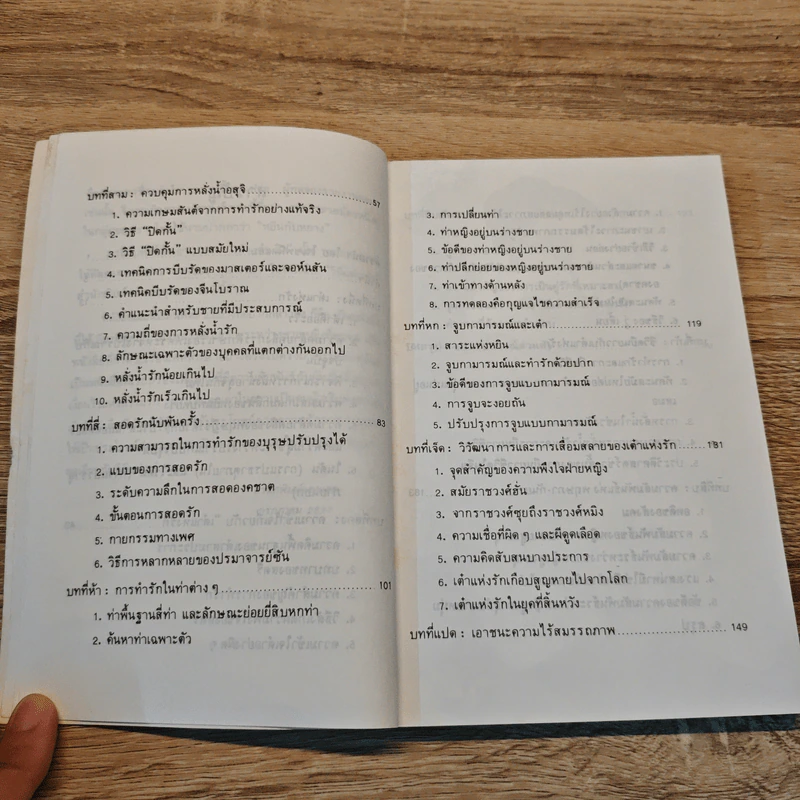 บทที่สาม : ควบคุมการหลั่งน้ำอสุจิ.......................... 57
1. ความเกษมสันต์จากการทำรักอย่างแท้จริง
2. วิธี "ปิดกั้น"
3. วิธี "ปิดกั้น" แบบสมัยใหม่
4. เทคนิคการบีบรัดของมาสเตอร์และจอห์นสัน
5. เทคนิคบีบรัดของจีนโบราณ
6. คำแนะนำสำหรับชายที่มีประสบการณ์
7. ความถี่ของการหลั่งน้ำรัก
8. ลักษณะเฉพาะตัวของบุคคลที่แตกต่างกันออกไป
9. หลั่งน้ำรักน้อยเกินไป
10. หลั่งน้ำรักเร็วเกินไป
บทที่สี่ : สอดรักนับพันครั้ง .................................. 83
1. ความสามารถในการทำรักของบุรุษปรับปรุงได้
2. แบบของการสอดรัก
3. ระดับความลึกในการสอดองคชาต
4. ขั้นตอนการสอดรัก
5. กายกรรมทางเพศ
6. วิธีการหลากหลายของปรมาจารย์ซัน
บทที่ห้า : การทำรักในท่าต่าง ๆ ............................. 101
1. ท่าพื้นฐานสี่ท่า และลักษณะย่อยยี่สิบหกท่า
2. ค้นหาท่าเฉพาะตัว
3. การเปลี่ยนท่า
4. ท่าหญิงอยู่บนร่างชาย
5. ข้อดีของท่าหญิงอยู่บนร่างชาย
6. ท่าปลีกย่อยของหญิงอยู่บนร่างชาย
7. ท่าเข้าทางด้านหลัง
8. การทดลองคือกุญแจไขความสำเร็จ
บทที่หก : จูบกามารมณ์และเต๋า ........................... 119
1. สาระแห่งหยิน
2. จูบกามารมณ์และทำรักด้วยปาก
3. ข้อดีของการจูบแบบกามารมณ์
4. การจูบจะงอยถัน
5. ปรับปรุงการจูบแบบกามารมณ์
บทที่เจ็ด : วิวัฒนาการและการเสื่อมสลายของเต๋าแห่งรัก 131
1. จุดสำคัญของความพึงใจฝ่ายหญิง
2. สมัยราชวงศ์ฮั่น
3. จากราชวงศ์ซุยถึงราชวงศ์หมิง
4. ความเชื่อที่ผิด ๆ และผีดูดเลือด
5. ความคิดสับสนบางประการ
6. เต๋าแห่งรักเกือบสูญหายไปจากโลก
7. เต๋าแห่งรักในยุคที่สิ้นหวัง
บทที่แปด : เอาชนะความไร้สมรรถภาพ...................... 149